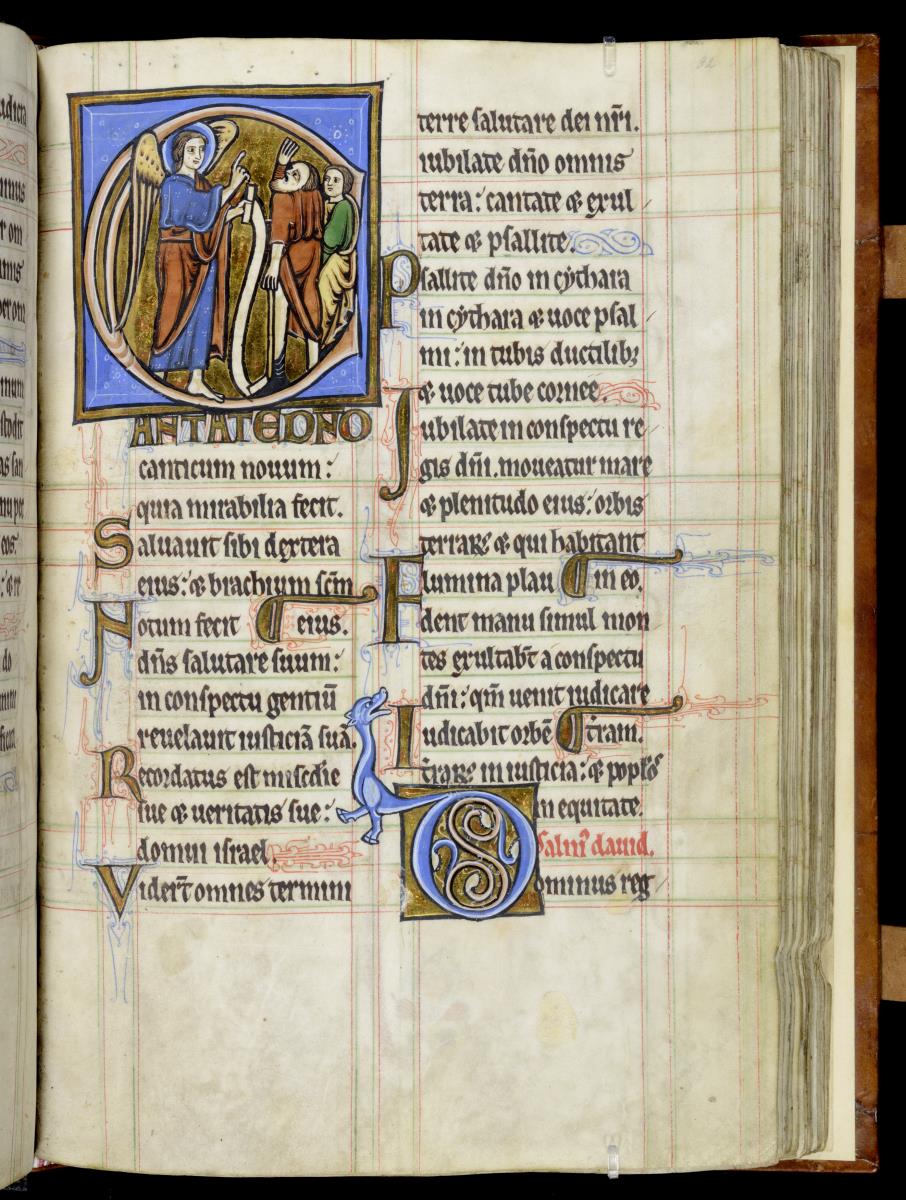 CANTATE DNO
canticum novum:
quia mirabilia fecit.
Saluauit sibi dextera
eius: & brachium scm̄
Notum fecit eius.
dn̄s salutare suum:
in conspectu gentiū
reuelauit iusticiā suā.
Recordatus est mis̄cdie
sue & ueritatis sue:
domui israel.
Vider̄t omnes termini
terre salutare dei nr̄i.
iubilate dn̄o omnis
terra: cantate & exul
tate & psallite.
Psallite dn̄o in cythara
in cythara & uoce psal
mi: in tubis ductilibꝫ
& uoce tube cornee.
Iubilate in conspectu re
gis dn̄i. moueatur mare
& plenitudo eius: orbis
terrarꝫ & qui habitant
Flumina plau in eo.
dent manu simul mon
tes exultab̄t a conspectu
dn̄i: qm̄ uenit iudicare
Iudicabit orbē t̄ram.
t̄rarꝫ in iusticia: & popl̄os
in equitate.
Psalm̄ dauid.
Dominus reg